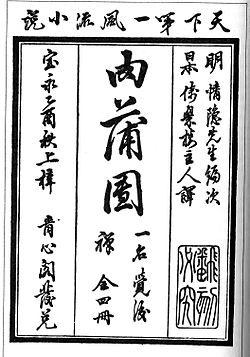 天下㐧一風流小說
明 情隱先生編次
日本 倚翠樓主人譯
肉蒲團
一名覺後禪 全四冊
宝永乙酉秋上梓 青心閣發兌